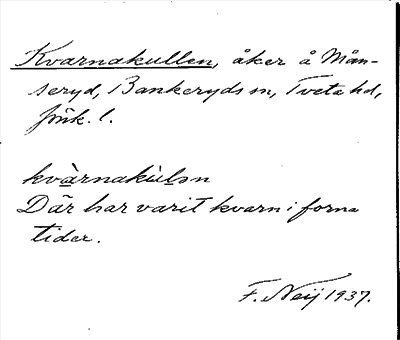 Kvarnakullen, åker å Mån-
seryd, Bankeryds sn, Tveta hd,
Jönk. l.
kvàrnakùlən
Där har varit kvarn i forna
tider.
F. Neij 1937.